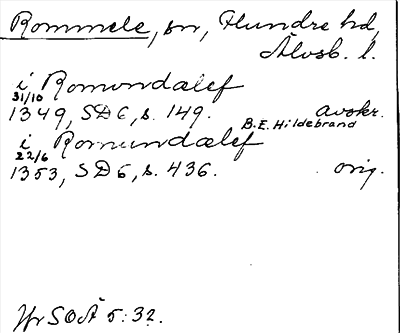 Rommele, sn, Flundre hd,
Älvsb. l.
i Romondalef
31/10
1349, SD 6, s. 149. avskr.
B.E. Hildebrand
i Romundælef
22/6
1353, SD 6, s. 436. orig.
Jfr SOÄ 5:32.